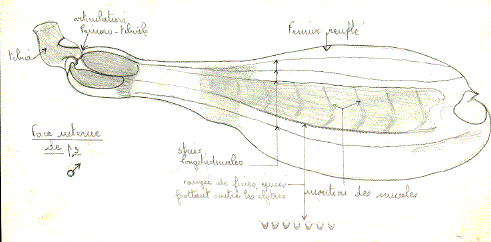 articulation
fémoro-tibiale
Fémur renflé
tibia
Face interne
de p3
stries
longitudinales
rangée de fines épines
frottant contre les élytres
insertion des muscles